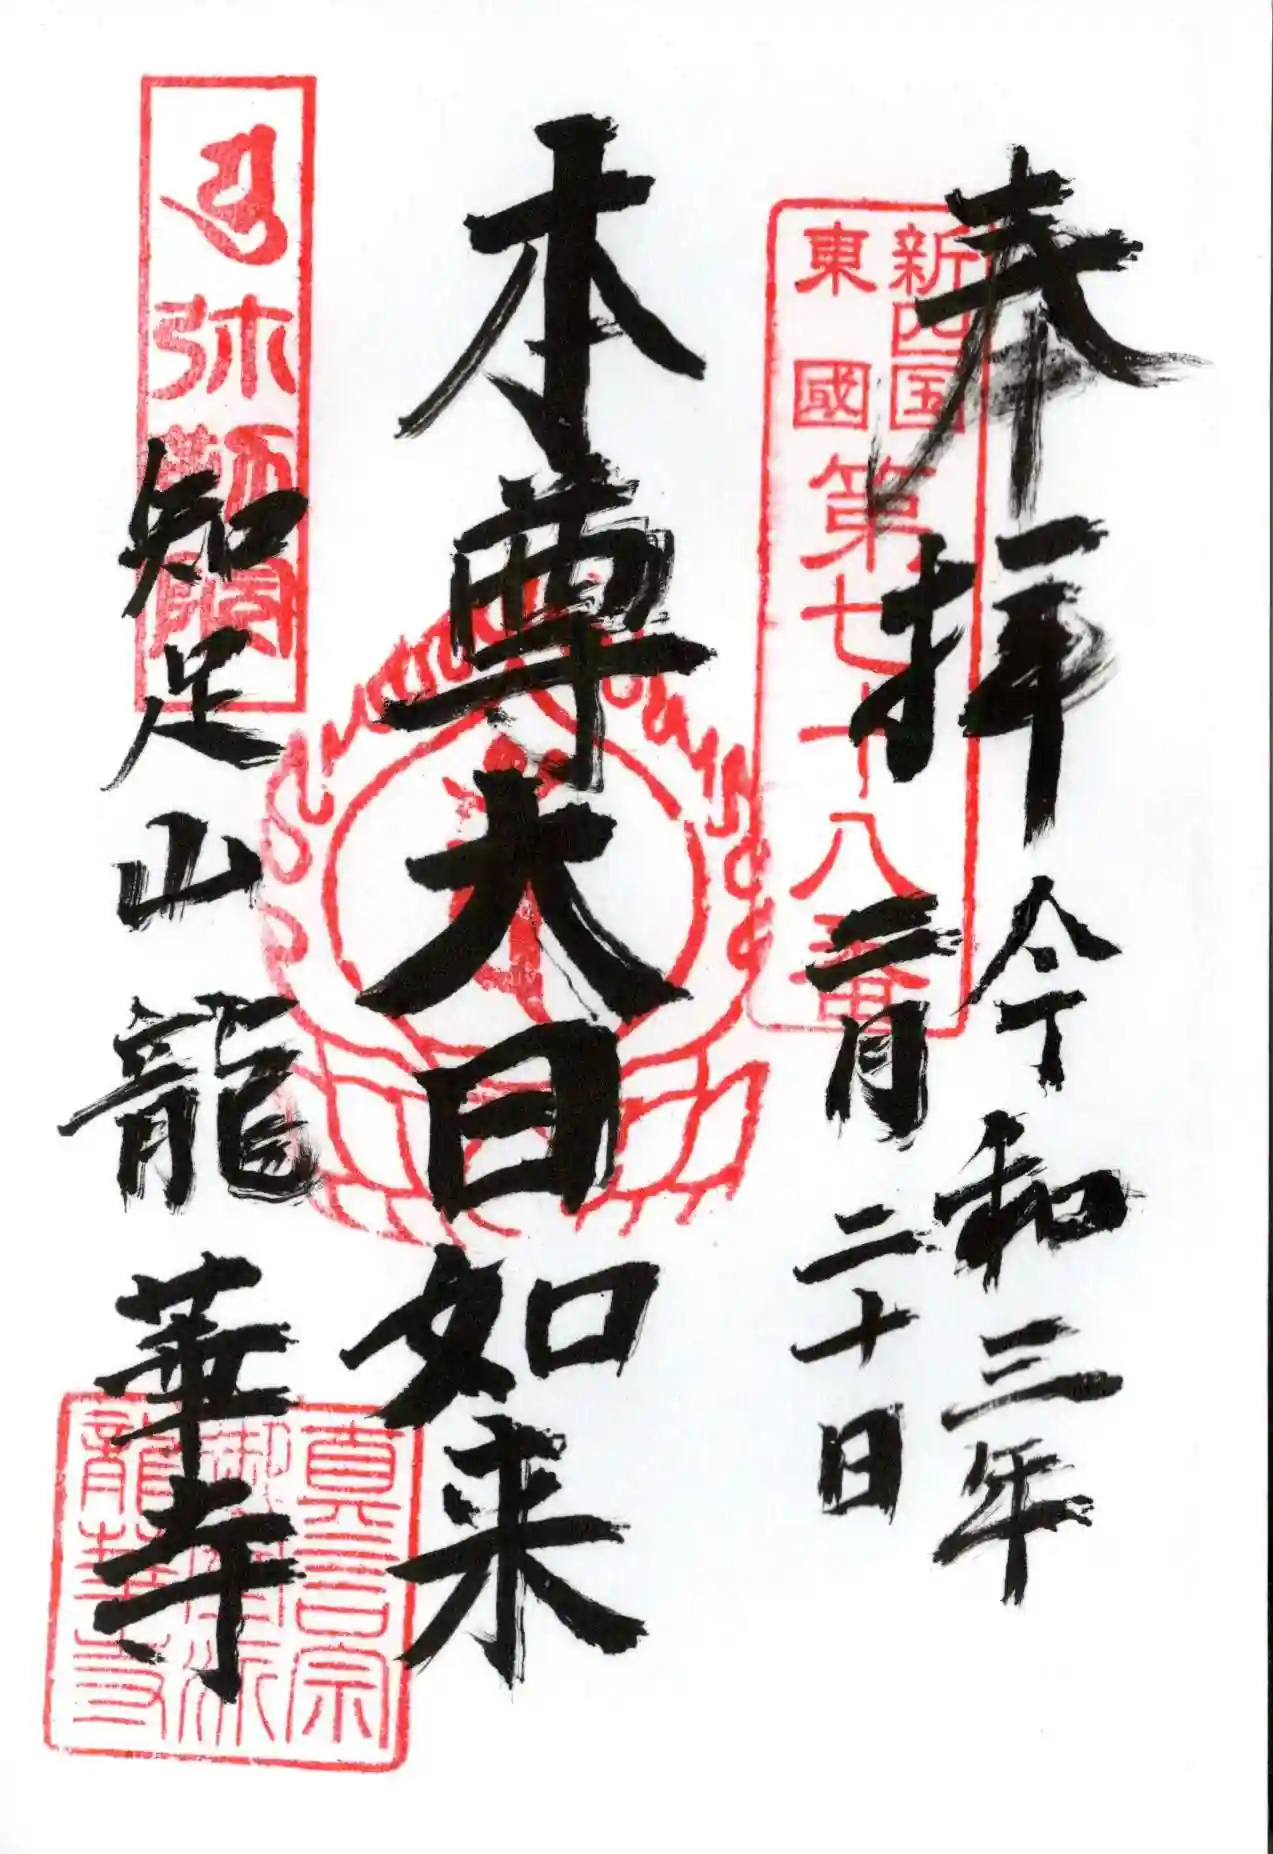 奉拝
令和三年
二月
二十日
新四国
東國
第七十八番
本尊大日如来
弥勒閣
知足山龍華寺
真言宗
御室派
龍華寺